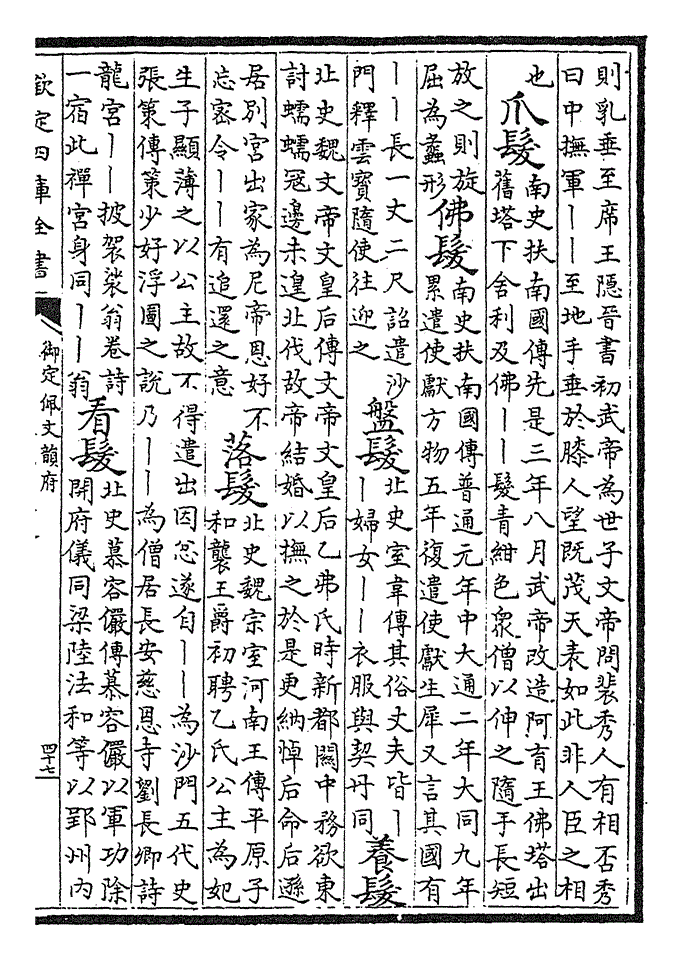 則乳垂至席王隱晉書初武帝為世子文帝問裴秀人有相否秀
曰中撫軍丨丨至地手垂於膝人望既茂天表如此非人臣之相
也
爪髮
南史扶南國傳先是三年八月武帝改造阿育王佛塔出
舊塔下舍利及佛丨丨髮青紺色衆僧以伸之隨手長短
放之則旋
屈為蠡形
佛髮
南史扶南國傳普通元年中大通二年大同九年
累遣使獻方物五年復遣使獻生犀又言其國有
丨丨長一丈二尺詔遣沙
門釋雲寶隨使往迎之
盤髮
北史室韋傳其俗丈夫皆丨
丨婦女丨丨衣服與契丹同
養髮
北史魏文帝文皇后傳文帝文皇后乙弗氏時新都關中務欲東
討蠕蠕寇邊未遑北伐故帝結婚以撫之於是更納悼后命后遜
居別宮出家為尼帝恩好不
忘密令丨丨有追還之意
落髮
北史魏宗室河南王傳平原子
和襲王爵初聘乙氏公主為妃
生子顯薄之以公主故不得遣出因忿遂自丨丨為沙門五代史
張策傳策少好浮圖之說乃丨丨為僧居長安慈恩寺劉長卿詩
龍宮丨丨披袈裟翁卷詩
一宿此禪宮身同丨丨翁
看髮
北史慕容儼傳慕容儼以軍功除
開府儀同梁陸法和等以郢州內
欽定四庫全書
御定佩文韻府
四十七